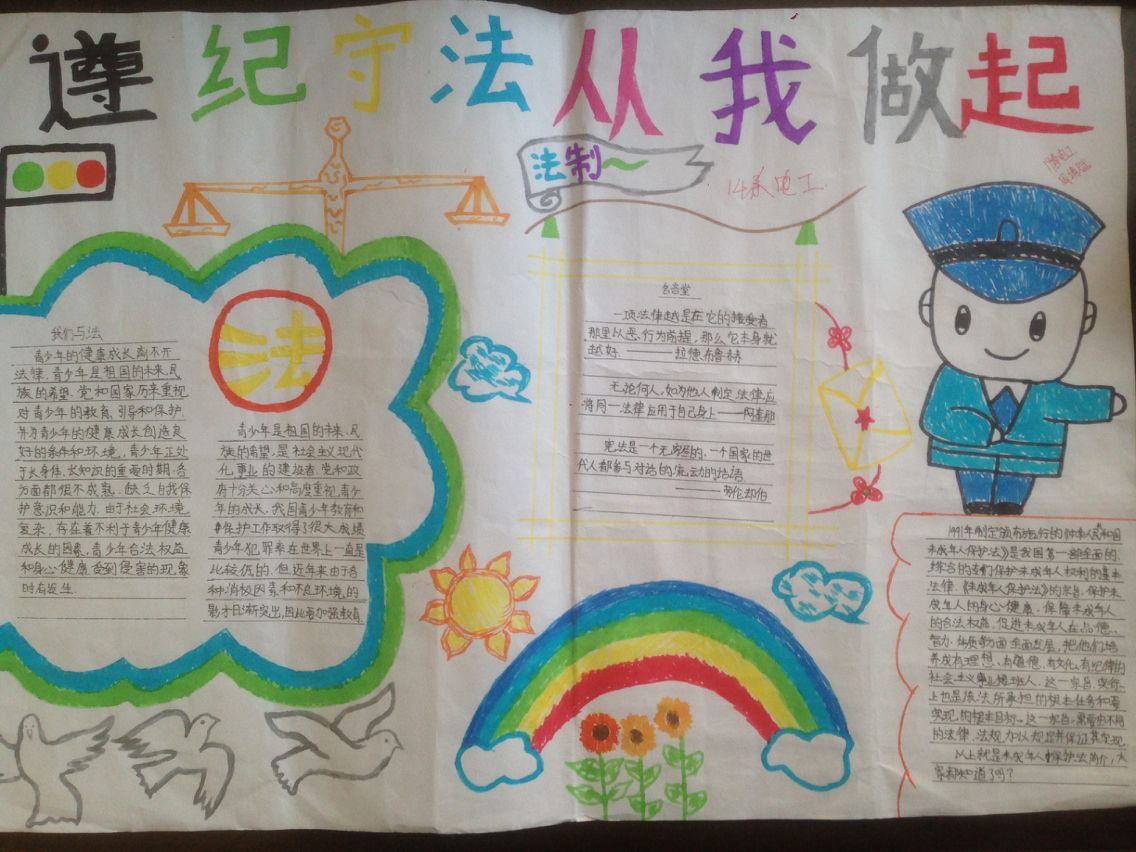 遵纪守法从我做起
法制~
14条电工
法
我们与法
青少年的健康成长离不开
法律,青少年是祖国的未来,民
族的希望。党和国家历来重视
对青少年的教育、引导和保护,
并为青少年的健康成长创造良
好的条件和环境,青少年正处
于长身体、长知识的重要时期,各
方面都很不成熟,缺乏自我保
护意识和能力,由于社会环境
复杂,存在着不利于青少年健康
成长的因素,青少年合法权益
和身心健康受到侵害的现象
时有发生.
青少年是祖国的未来、民
族的希望,是社会主义现代
化事业的建设者,党和政
府十分关心和高度重视青少
年的成长,我国青少年教育和
保护工作取得了很大成绩
青少年犯罪率在世界上一直是
比较低的,但近年来由于各
种消极因素和不良环境的
影响日渐突出,因此要加强教育
名言堂
一项法律越是在它的接受者
那里以恶行为前提,那么它本身就
越好.——拉德布鲁赫
无论何人,如为他人制定法律,应
将同一法律应用于自己身上——阿奎那
宪法是一个无穷尽的、一个国家的世
代人都参与对话的流动的话语
——劳伦却伯
1991年制定颁布施行的《中华人民共和国
未成年人保护法》是我国第一部全面的、
综合的专门保护未成年人权利的基本
法律.《未成年人保护法》的宗旨,保护未
成年人的身心健康,保障未成年人
的合法权益,促进未成年人在品德、
智力、体质等方面全面发展,把他们培
养成有理想、有道德、有文化、有纪律的
社会主义事业接班人,这一宗旨,实际
上也是该法所承担的根本任务和要
实现的根本目标。这一宗旨,需要由不同
的法律、法规加以规定并保证其实现
以上就是未成年人保护法简介,大
家都知道了吗?